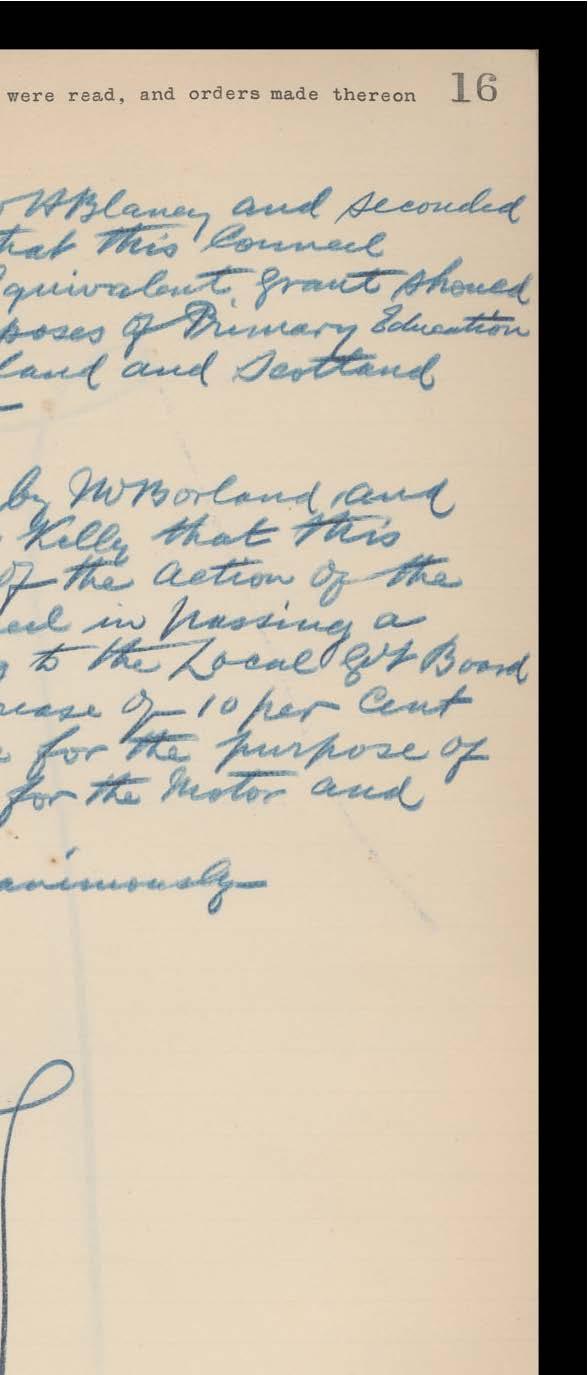 were read, and orders made thereon 16
HBlaney and seconded
that this Council
Equivalent Grant should
poses of Primary Education
land and Scotland
by McBorland and
Kelly that this
of the action of the
cil in passing a
g to the Local Gvt Board
rease of 10 per Cent
for the purpose of
for the Motor and
animously